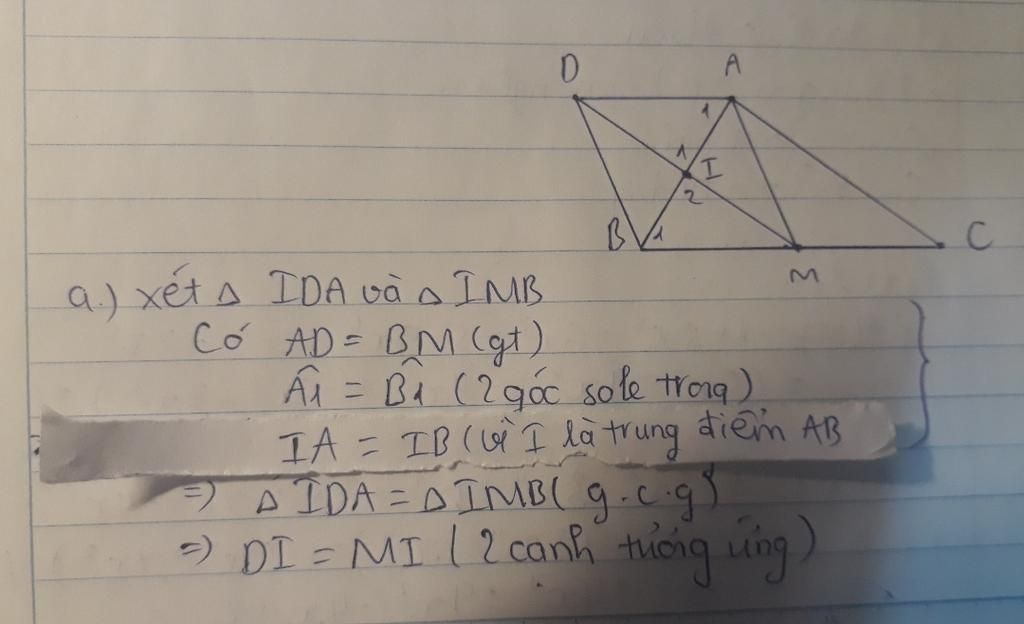 D A
1
1 I
2
B 1 C
M
a.) xét △ IDA và △ IMB
Có AD = BM (gt)
Â1 = B̂1 (2 góc sole trong)
IA = IB (vì I là trung điểm AB
=> △ IDA = △ IMB ( g.c.g)
=> DI = MI ( 2 canh tương ứng )